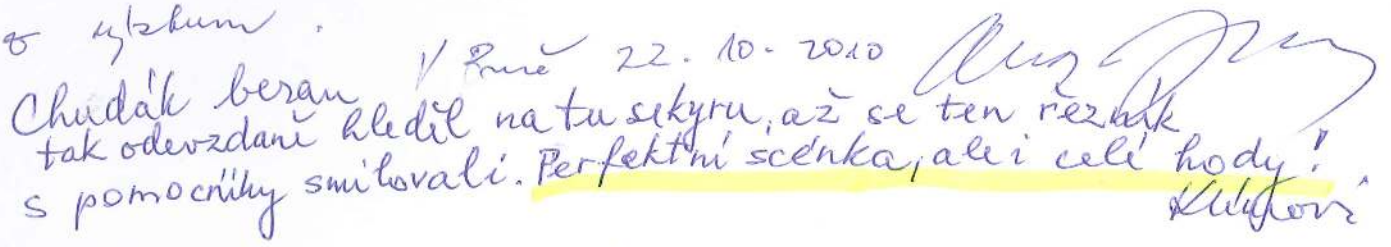 V Brně 22. 10. 2010
Chudák beran
tak odevzdaně hleděl na tu sekyru, až se ten řezník
s pomocníky smilovali. Perfektní scénka, ale i celé hody!